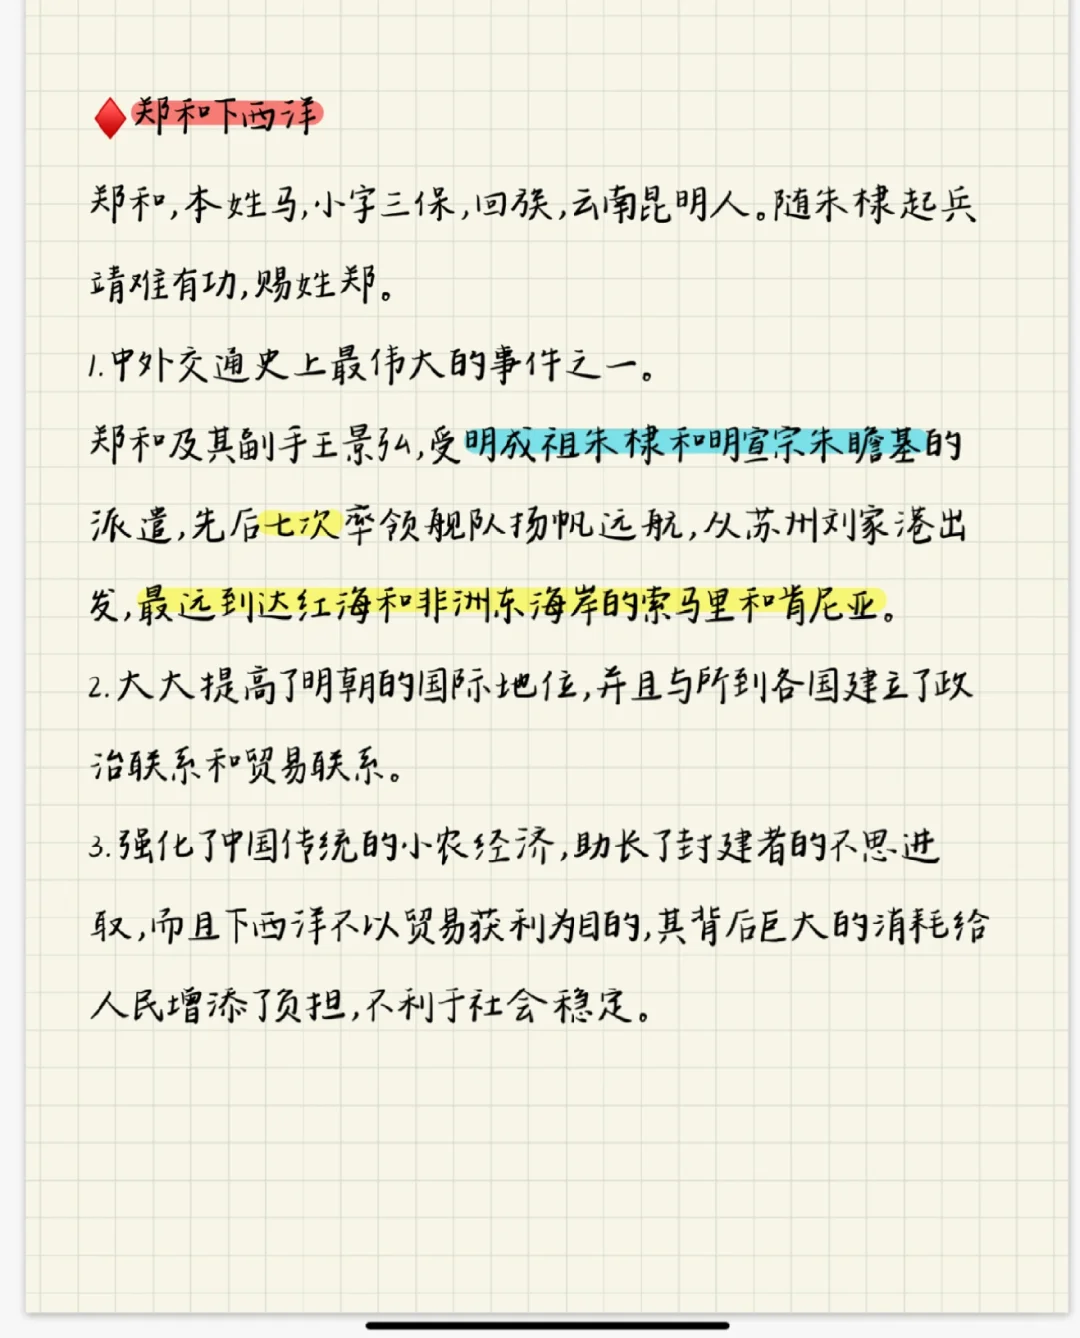 郑和下西洋
郑和,本姓马,小字三保,回族,云南昆明人。随朱棣起兵
靖难有功,赐姓郑。
1.中外交通史上最伟大的事件之一。
郑和及其副手王景弘,受明成祖朱棣和明宣宗朱瞻基的
派遣,先后七次率领舰队扬帆远航,从苏州刘家港出
发,最远到达红海和非洲东海岸的索马里和肯尼亚。
2.大大提高了明朝的国际地位,并且与所到各国建立了政
治联系和贸易联系。
3.强化了中国传统的小农经济,助长了封建者的不思进
取,而且下西洋不以贸易获利为目的,其背后巨大的消耗给
人民增添了负担,不利于社会稳定。